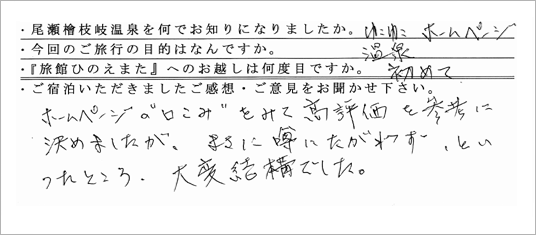 ・尾瀬檜枝岐温泉を何でお知りになりましたか。 ゆこゆこ ホームページ
・今回のご旅行の目的はなんですか。 温泉
・『旅館ひのえまた』へのお越しは何度目ですか。 初めて
・ご宿泊いただきましたご感想・ご意見をお聞かせ下さい。
ホームページの“口こみ”をみて高評価を参考に
決めましたが、まさに噂にたがわず、とい
ったところ。大変結構でした。